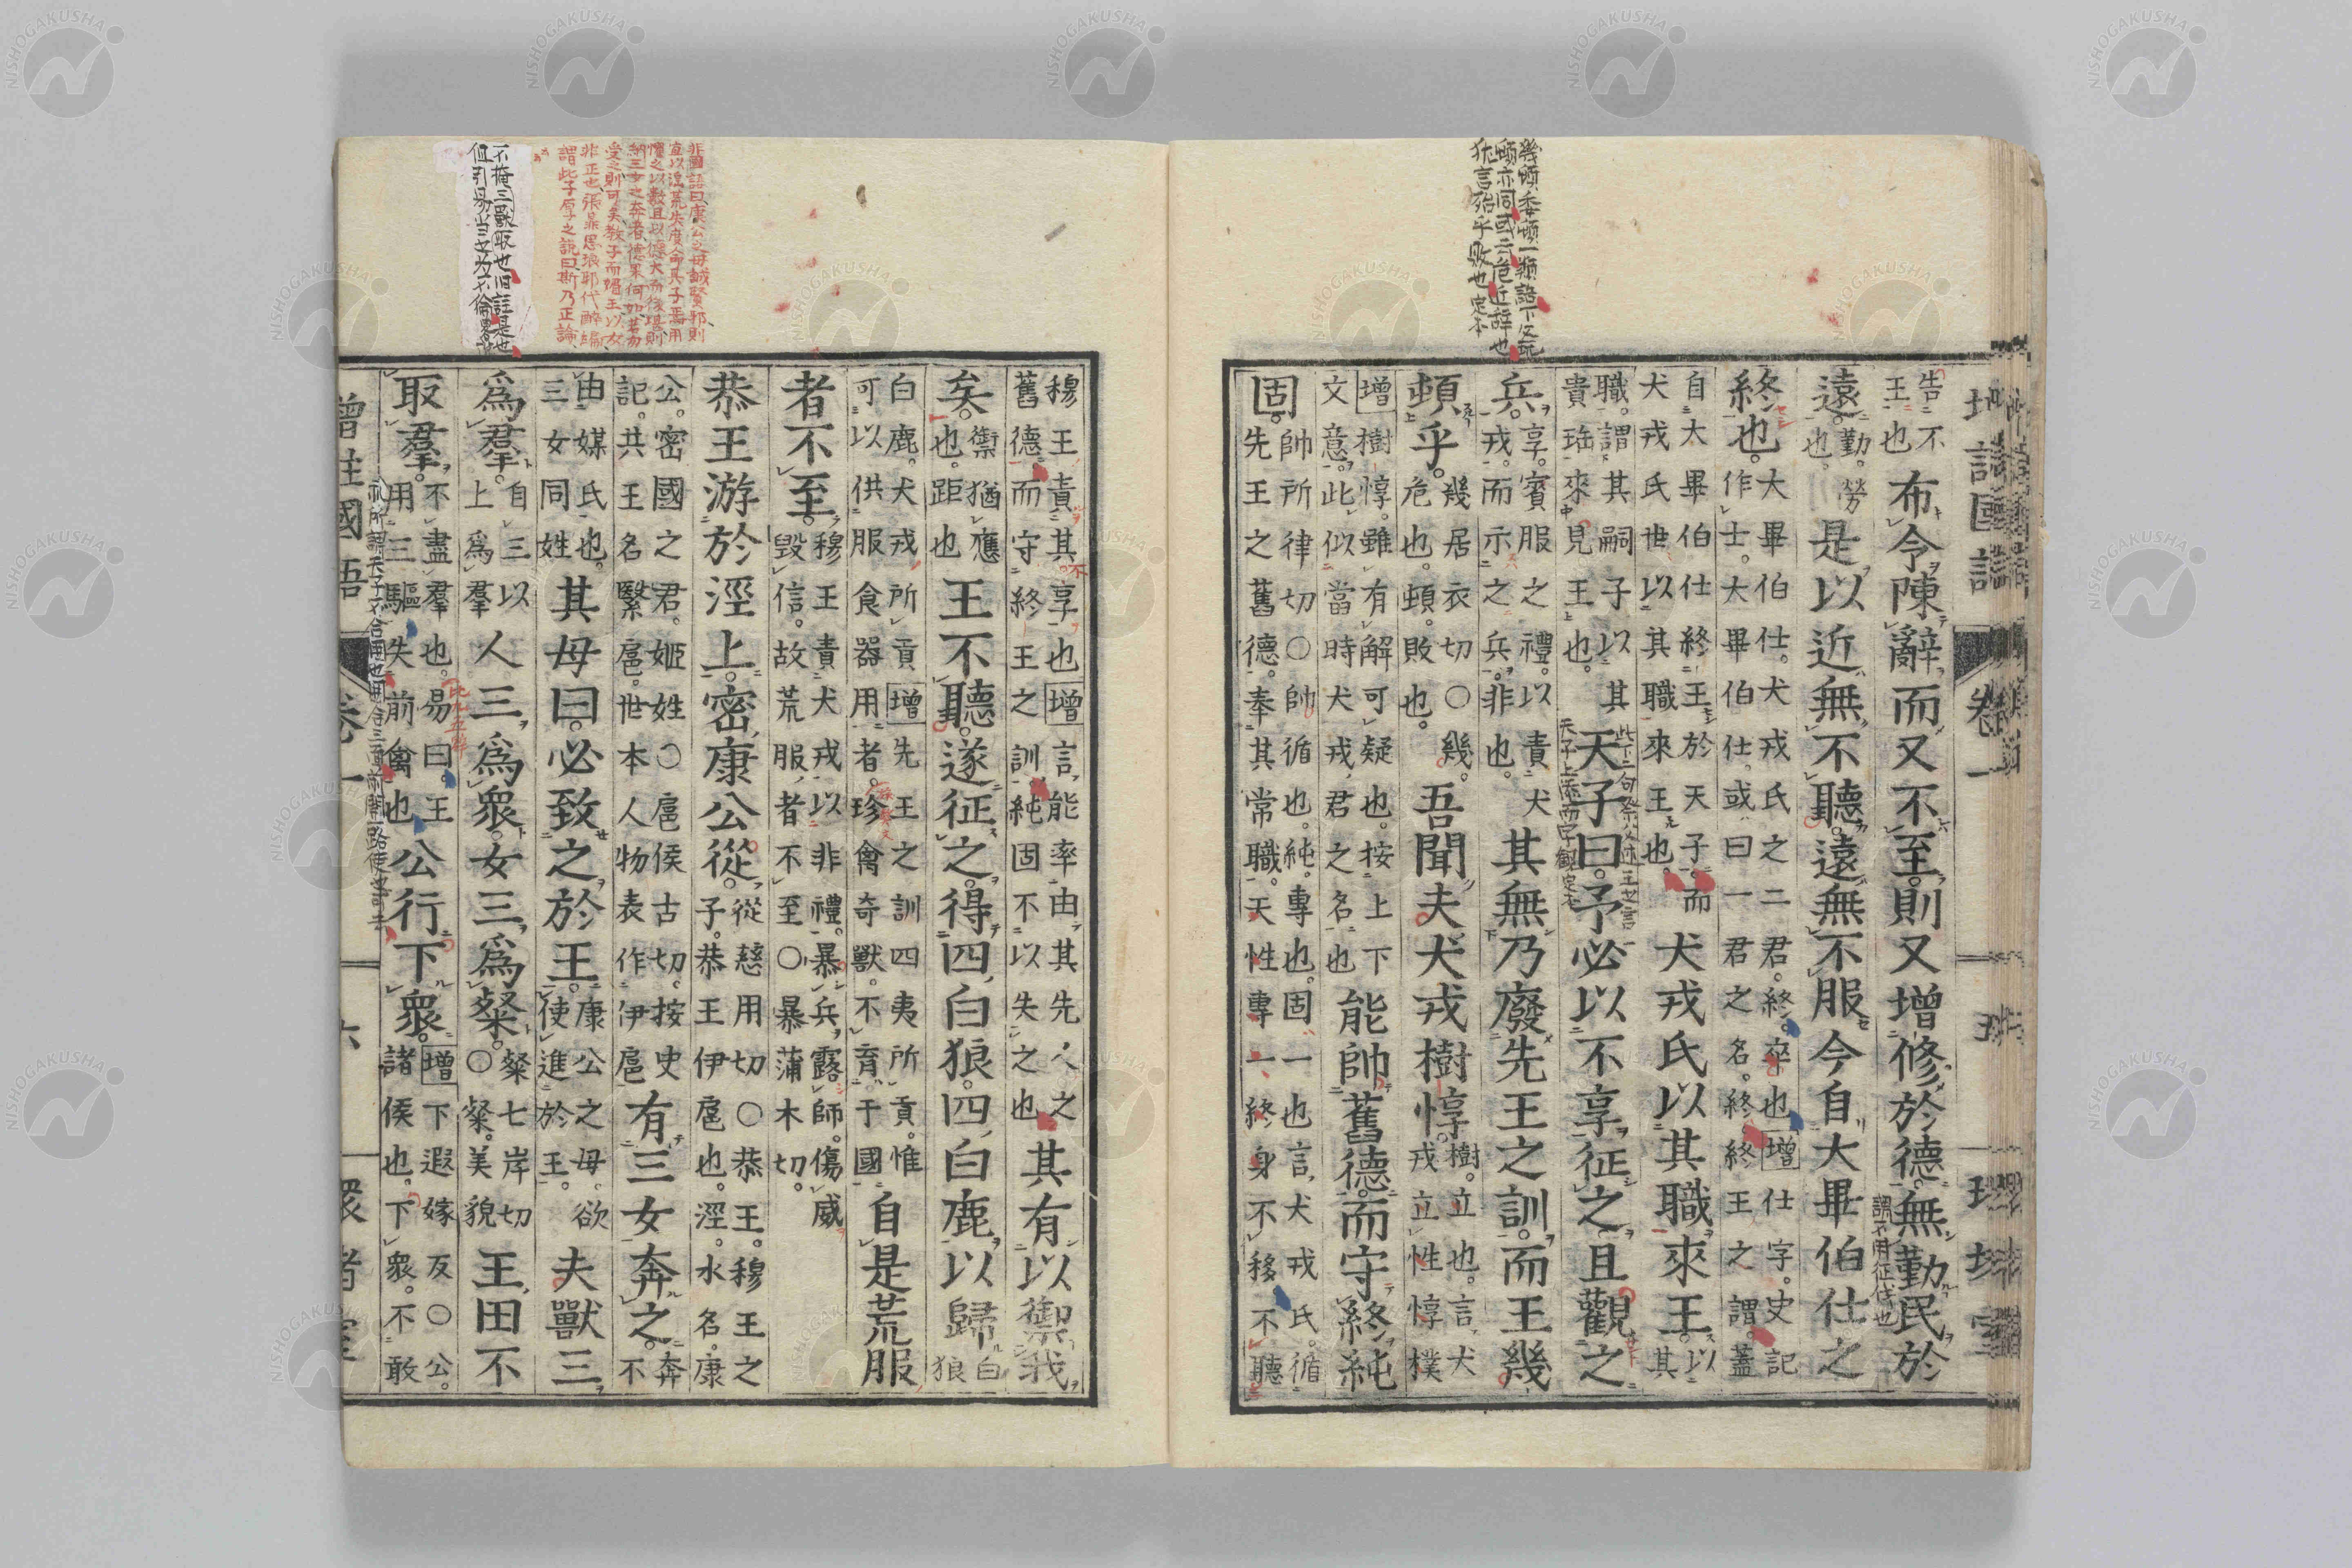 幾頓委頓一類語下文玩
頓亦同或云危近辭也
犹言殆乎敗也定本
告不
王也
布令陳辭而又不至則又增修於德無勤民於
謂不用征伐也
遠
勤勞
也
是以近無不聽遠無不服今自大畢伯仕之
終也
大畢伯仕犬戎氏之二君終卒也增仕字史記
作士大畢伯仕或曰一君之名終終王之謂蓋
自大畢伯仕終王於天子而
犬戎氏世以其職來王也
犬戎氏以其職來王
以
其
職謂其嗣子以其
貴珤來見王也
天子曰予必以不享征之且觀之
兵
享賓服之禮以責犬
戎而示之兵非也
其無乃廢先王之訓而王幾
頓乎
幾居衣切○幾
危也頓敗也
吾聞夫犬戎樹惇
樹立也言犬
戎立性惇樸
增樹惇雖有解可疑也按上下
文意此似當時犬戎君之名也
能帥舊德而守終純
固
帥所律切○帥循也純專也固一也言犬戎氏循
先王之舊德奉其常職天性專一終身不移不聽
穆王責其不享也增言能率由其先人之
舊德而守終王之訓純固不以失之也
其有以禦我
矣
禦猶應
也距也
王不聽遂征之得四白狼四白鹿以歸
白
狼
白鹿犬戎所貢增先王之訓四夷所貢惟
可以供服食器用者珍禽奇獸不育于國
自是荒服
者不至
穆王責犬戎以非禮暴兵露師傷威
毀信故荒服者不至○暴蒲木切
恭王游於涇上密康公從
從慈用切○恭王穆王之
子恭王伊扈也涇水名康
公密國之君姬姓○扈侯古切按史
記共王名繄扈世本人物表作伊扈
有三女奔之
奔
不
由媒氏也
三女同姓
其母曰必致之於王
康公之母欲
使進於王
夫獸三
爲羣
自三以
上爲羣
人三爲衆女三爲粲
粲七岸切
○粲美貌
王田不
取羣
不盡羣也易曰王
用三驅失前禽也
公行下衆
增下遐嫁反○公
諸侯也下衆不敢
增註國語
卷一
六
非國語曰康公之母誠賢耶則
宜以淫荒失度命其子焉用
懼之以數且以德大而後堪則
納三女之奔者德果何如若勿
受之則可矣教子而媚王以女
非正也張鼎思琅邪代醉編
謂此子厚之説曰斯乃正論
不掩三獸取也旧註是也